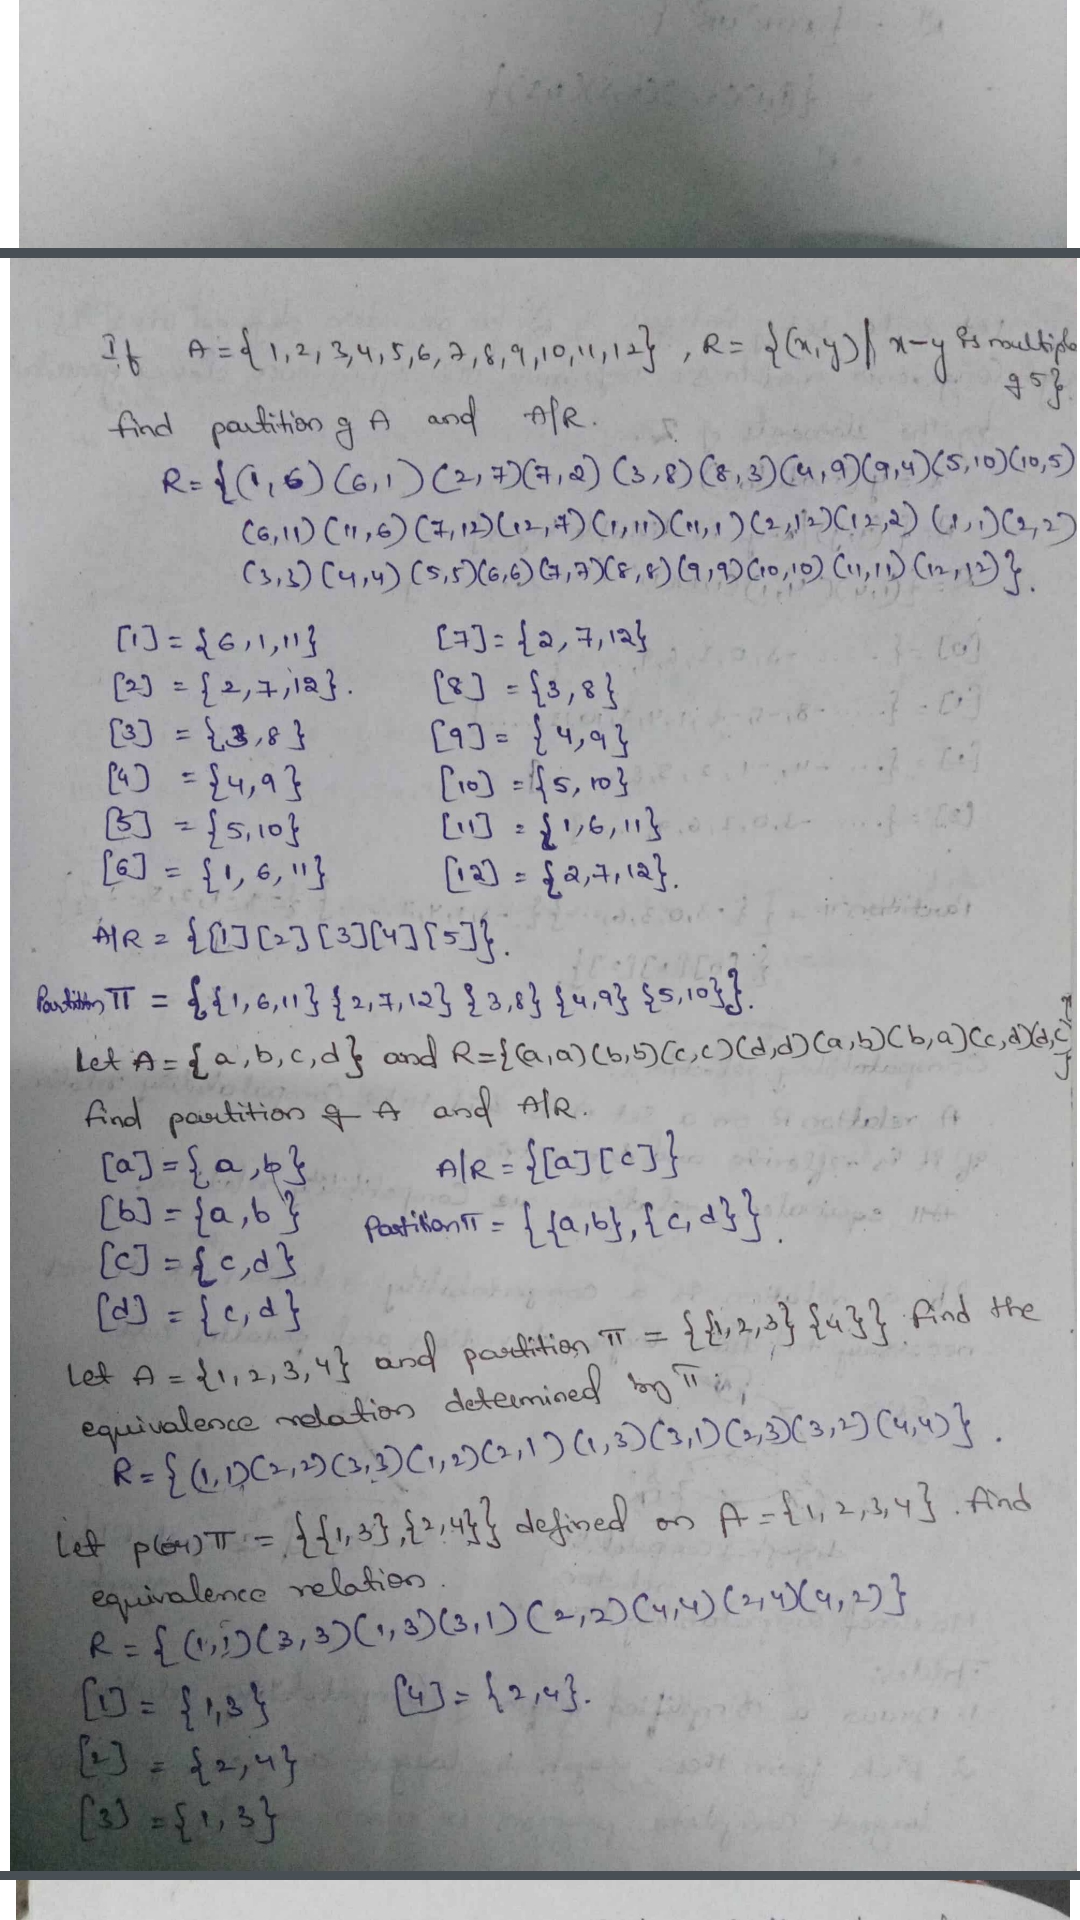 If A={1,2,3,4,5,6,7,8,9,10,11,12}, R= {(x,y)| x-y is multiple
of 5}.
find partition of A and A/R.
R={(1,6)(6,1)(2,7)(7,2)(3,8)(8,3)(4,9)(9,4)(5,10)(10,5)
(6,11)(11,6)(7,12)(12,7)(1,11)(11,1)(2,12)(12,2)(1,1)(2,2)
(3,3)(4,4)(5,5)(6,6)(7,7)(8,8)(9,9)(10,10)(11,11)(12,12)}.
[1]={6,1,11} [7]={2,7,12}
[2]={2,7,12}. [8]={3,8}
[3]={3,8} [9]={4,9}
[4]={4,9} [10]={5,10}
[5]={5,10} [11]={1,6,11}
[6]={1,6,11} [12]={2,7,12}.
A/R={[1][2][3][4][5]}.
Partition π={{1,6,11}{2,7,12}{3,8}{4,9}{5,10}}.
Let A={a,b,c,d} and R={(a,a)(b,b)(c,c)(d,d)(a,b)(b,a)(c,d)(d,c)}
find partition of A and A/R.
[a]={a,b} A/R={[a][c]}
[b]={a,b} Partition π={{a,b},{c,d}}.
[c]={c,d}
[d]={c,d}
Let A={1,2,3,4} and partition π={{1,2,3}{4}} find the
equivalence relation determined by π.
R={(1,1)(2,2)(3,3)(1,2)(2,1)(1,3)(3,1)(2,3)(3,2)(4,4)}.
Let π={{1,3},{2,4}} defined on A={1,2,3,4}. find
equivalence relation.
R={(1,1)(3,3)(1,3)(3,1)(2,2)(4,4)(2,4)(4,2)}
[1]={1,3} [4]={2,4}.
[2]={2,4}
[3]={1,3}